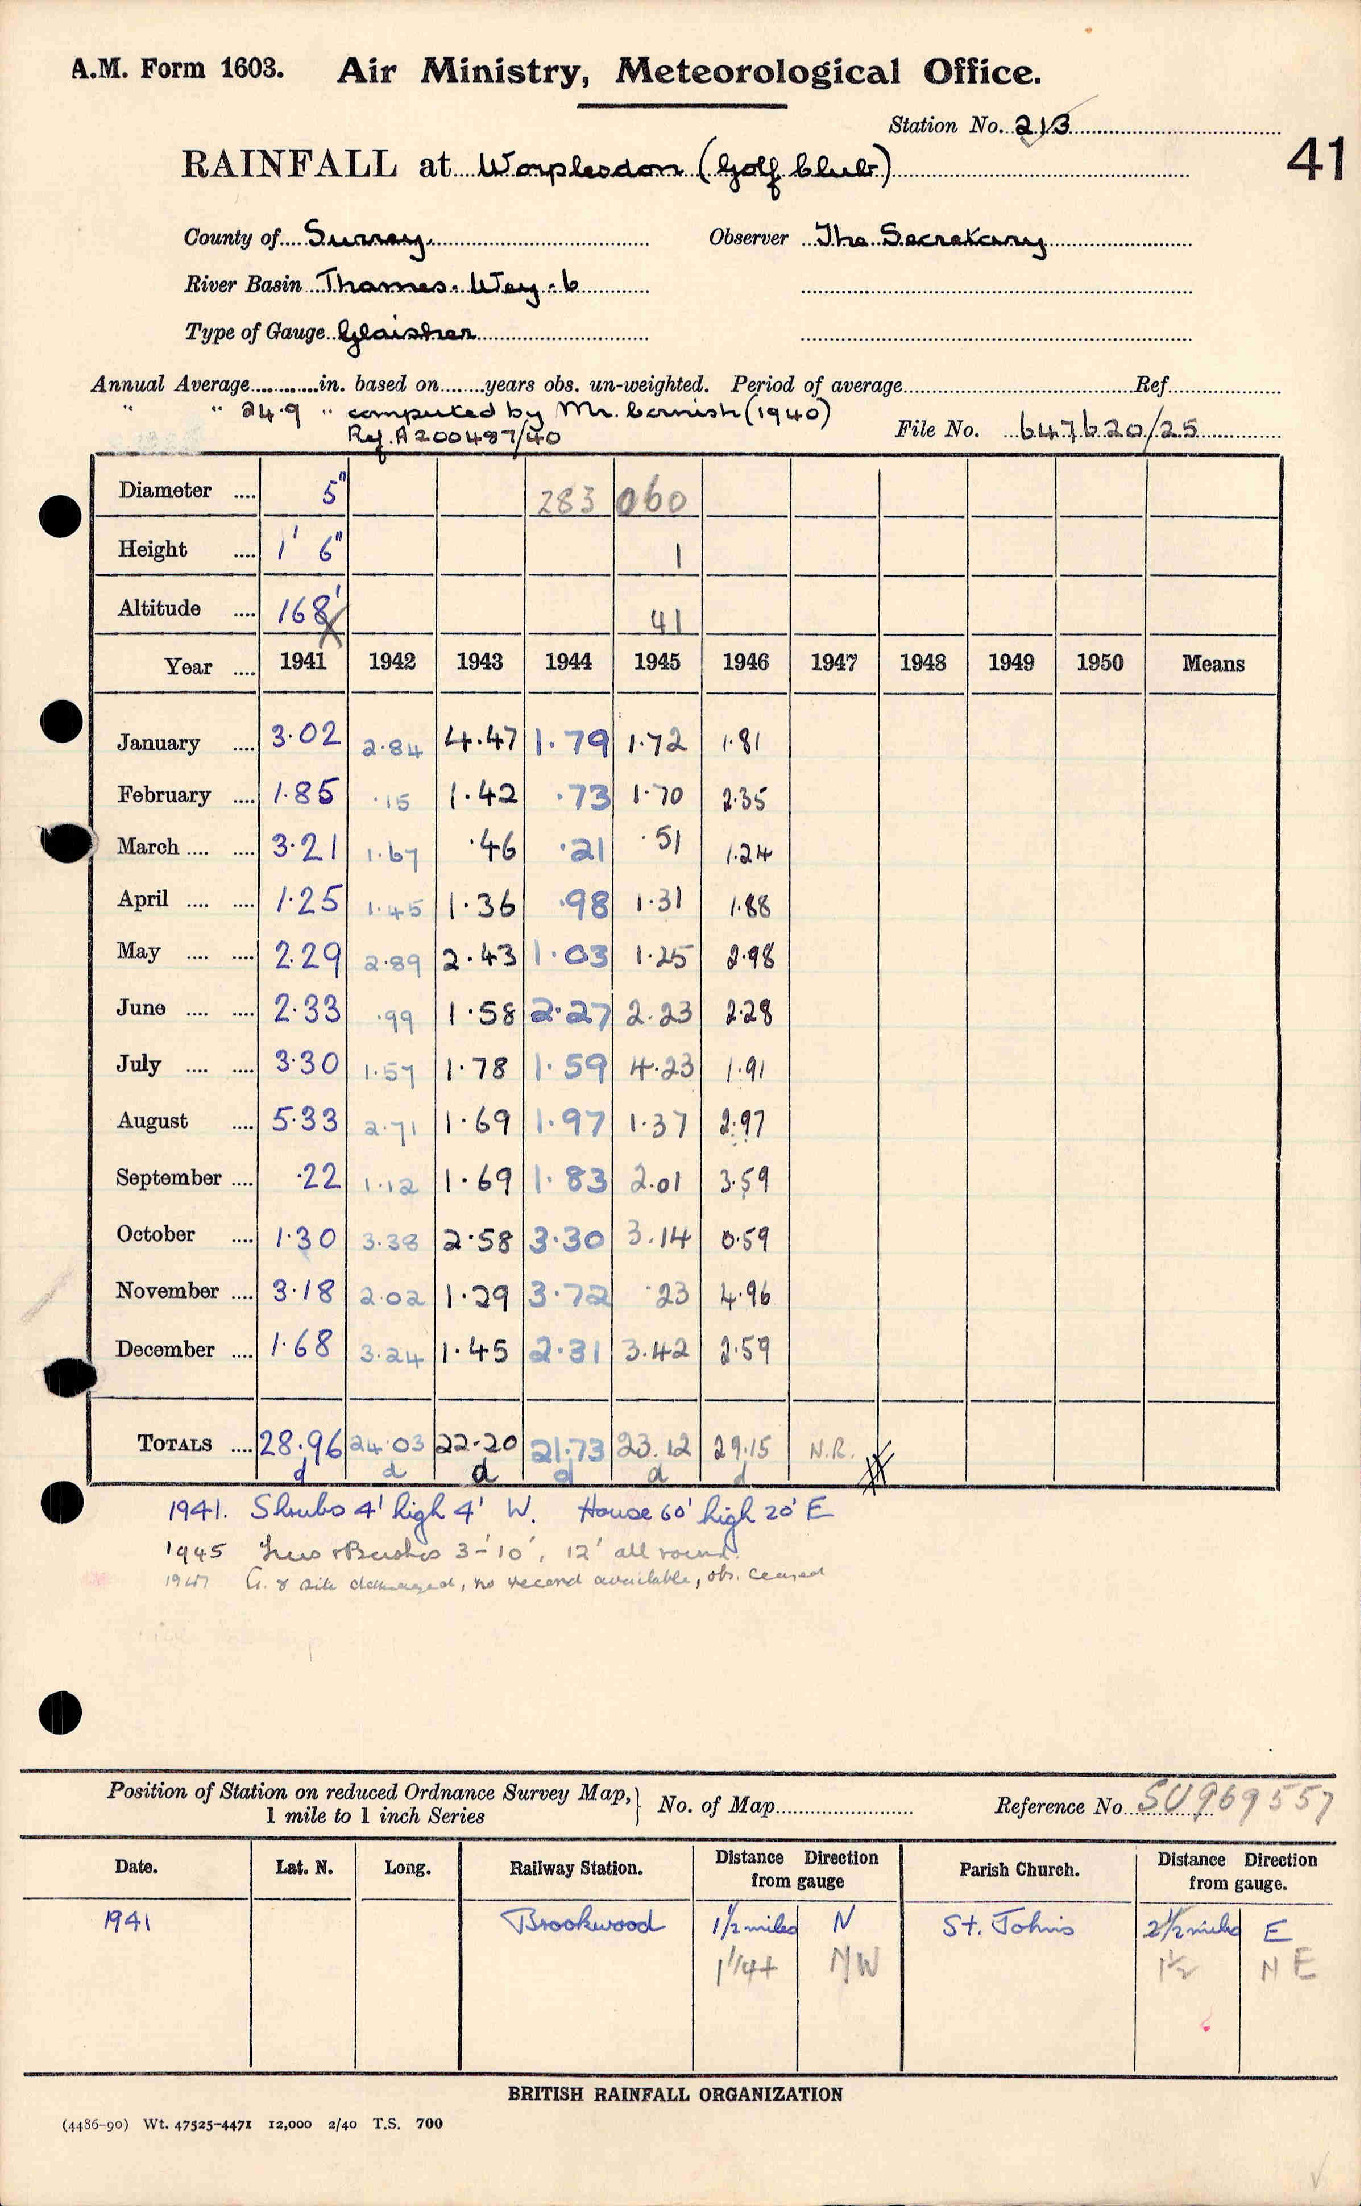 A.M. Form 1603. Air Ministry, Meteorological Office.
Station No. 213
41
RAINFALL at Worplesdon (Golf Club)
County of Surrey. Observer The Secretary
River Basin Thames. Wey. 6
Type of Gauge Glaisher
Annual Average............in. based on........years obs. un-weighted. Period of average........Ref........
" " 24.9 " computed by Mr. Cornish (1940)
Ref. A200487/40 File No. 647620/25
Diameter .... 5" 283 060
Height .... 1' 6" 1
Altitude .... 168' 41
Year .... 1941 1942 1943 1944 1945 1946 1947 1948 1949 1950 Means
January .... 3.02 2.84 4.47 1.79 1.72 1.81
February .... 1.85 .15 1.42 .73 1.70 2.35
March .... .... 3.21 1.67 .46 .21 .51 1.24
April .... .... 1.25 1.45 1.36 .98 1.31 1.88
May .... .... 2.29 2.89 2.43 1.03 1.25 2.98
June .... .... 2.33 .99 1.58 2.27 2.23 2.28
July .... .... 3.30 1.57 1.78 1.59 4.23 1.91
August .... 5.33 2.71 1.69 1.97 1.37 2.97
September .... .22 1.12 1.69 1.83 2.01 3.59
October .... 1.30 3.38 2.58 3.30 3.14 0.59
November .... 3.18 2.02 1.29 3.72 .23 4.96
December .... 1.68 3.24 1.45 2.31 3.42 2.59
TOTALS .... 28.96 24.03 22.20 21.73 23.12 29.15 N.R.
d d d d d d
1941. Shrubs 4' high 4' W. House 60' high 20' E
1945 Trees & Bushes 3'-10', 12' all round.
1947 G. & site damaged, no record available, obs. ceased
Position of Station on reduced Ordnance Survey Map, 1 mile to 1 inch Series } No. of Map........ Reference No. SU969557
Date. Lat. N. Long. Railway Station. Distance Direction from gauge Parish Church. Distance Direction from gauge.
1941 Brookwood 1½ miles N St. John's 2½ miles E
1¼+ NW 1½ NE
BRITISH RAINFALL ORGANIZATION
(4486-90) Wt. 47525-4471 12,000 2/40 T.S. 700